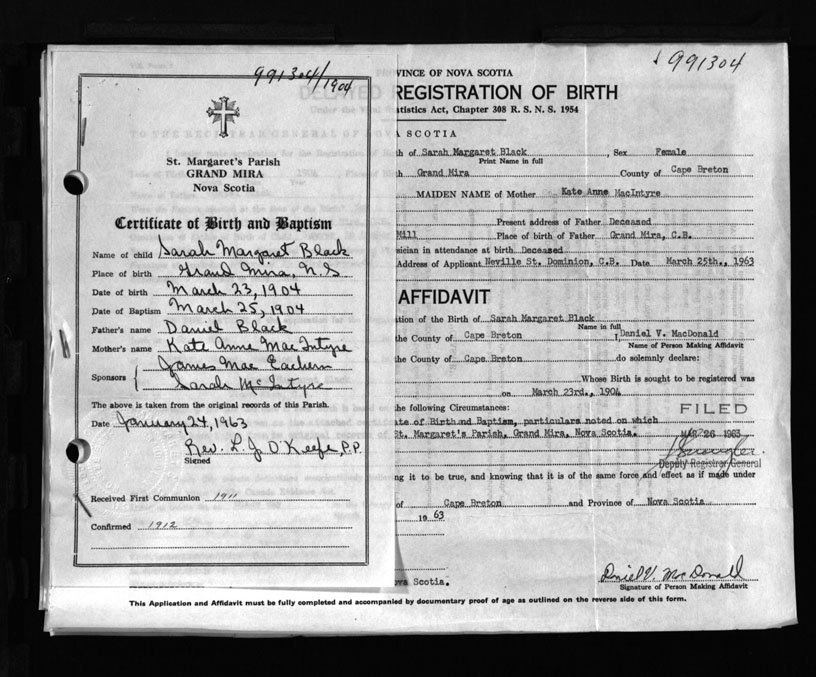 991304/1904
St. Margaret's Parish
GRAND MIRA
Nova Scotia
Certificate of Birth and Baptism
Name of child Sarah Margaret Black
Place of birth Grand Mira, N.S
Date of birth March 23, 1904
Date of Baptism March 25, 1904
Father's name Daniel Black
Mother's name Kate Anne MacIntyre
Sponsors James Mac Eachern
Sarah McIntyre
The above is taken from the original records of this Parish.
Date January 24, 1963
Rev. L. J. O'Keefe, P.P.
Signed
Received First Communion 1911
Confirmed 1912
991304
VINCE OF NOVA SCOTIA
DELAYED REGISTRATION OF BIRTH
tatistics Act, Chapter 308 R. S. N. S. 1954
A SCOTIA
th of Sarah Margaret Black, Sex Female
Print Name in full
h Grand Mira County of Cape Breton
MAIDEN NAME of Mother Kate Anne MacIntyre
Present address of Father Deceased
Mill Place of birth of Father Grand Mira, C.B.
sician in attendance at birth Deceased
Address of Applicant Neville St. Dominion, C.B. Date March 25th., 1963
AFFIDAVIT
tion of the Birth of Sarah Margaret Black
Name in full
the County of Cape Breton I, Daniel V. MacDonald
Name of Person Making Affidavit
the County of Cape Breton do solemnly declare:
Whose Birth is sought to be registered was
on March 23rd., 1904
the following Circumstances:
FILED
ate of Birth and Baptism, particulars noted on which
St. Margaret's Parish, Grand Mira, Nova Scotia.
MAR 26 1963
Deputy Registrar General
ing it to be true, and knowing that it is of the same force and effect as if made under
of Cape Breton and Province of Nova Scotia
19 63
Daniel V. MacDonald
ova Scotia.
Signature of Person Making Affidavit
This Application and Affidavit must be fully completed and accompanied by documentary proof of age as outlined on the reverse side of this form.